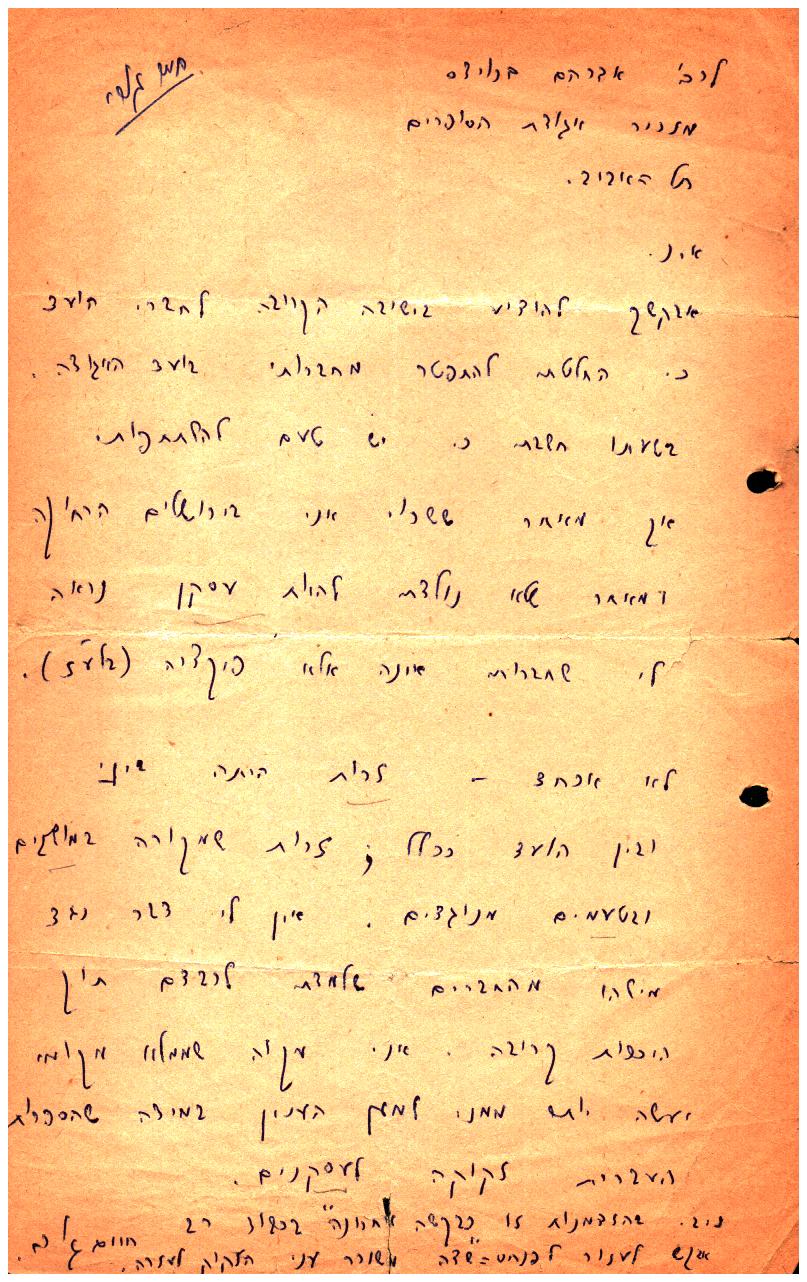 לרב׳ אברהם ברוידס
מזכיר אגודת הסופרים
תל האביב.
א.נ.
אבקשך להודיע בישיבה הקרובה לחברי הועד
כי החלטתי להתפטר מחברותי בועד האגודה.
בשעתו חשבתי כי יש טעם להשתתפותי
אך מאחר ששרוי אני בירושלים הרחוקה
ומאחר שלא נולדתי להיות עסקן נראה
לי שחברותי אינה אלא פיקציה (בלע״ז).
לא אכחד – זרות היתה ביני
ובין הועד בכלל; זרות שמקורה במושגים
ובטעמים מנוגדים. אין לי דבר נגד
מישהו מהחברים שלמדתי לכבדם תוך
היכרות קרובה. אני מקוה שממלא מקומי
יעשה יותר ממני למען הענין במידה שהספרות
העברית זקוקה לעסקנים.
נ.ב. בהזדמנות זו כבקשה אחרונה בכשון רב
אבקש לעזור לפנחס שדה משורר עני הזקוק לעזרה.
חיים